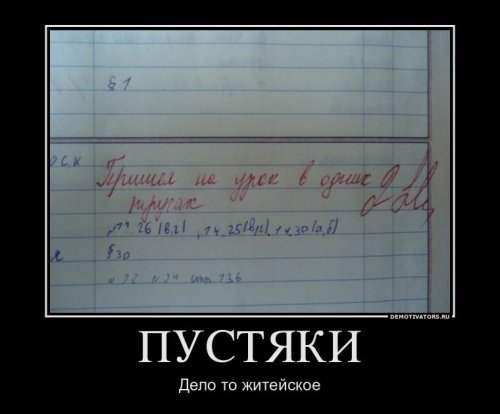 § 1
Пришел на урок в одних
трусах
№14.26(в,г), 14.25(в,г), 14.30(а,б)
§30
№32 №34 стр 136
DEMOTIVATORS.RU
ПУСТЯКИ
Дело то житейское